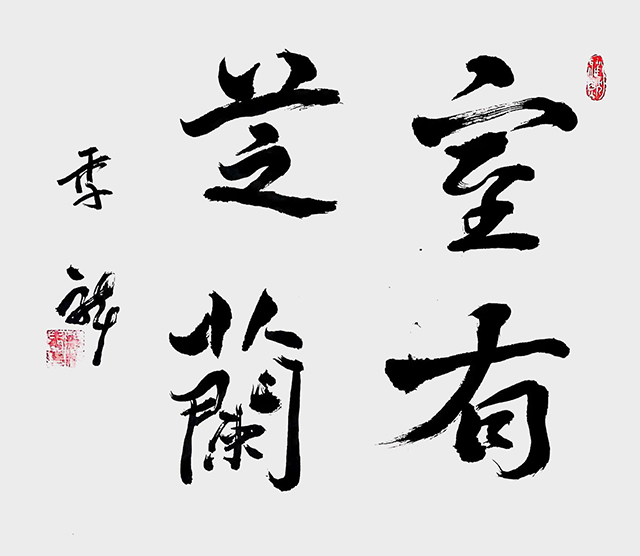 室有
芝蘭
季